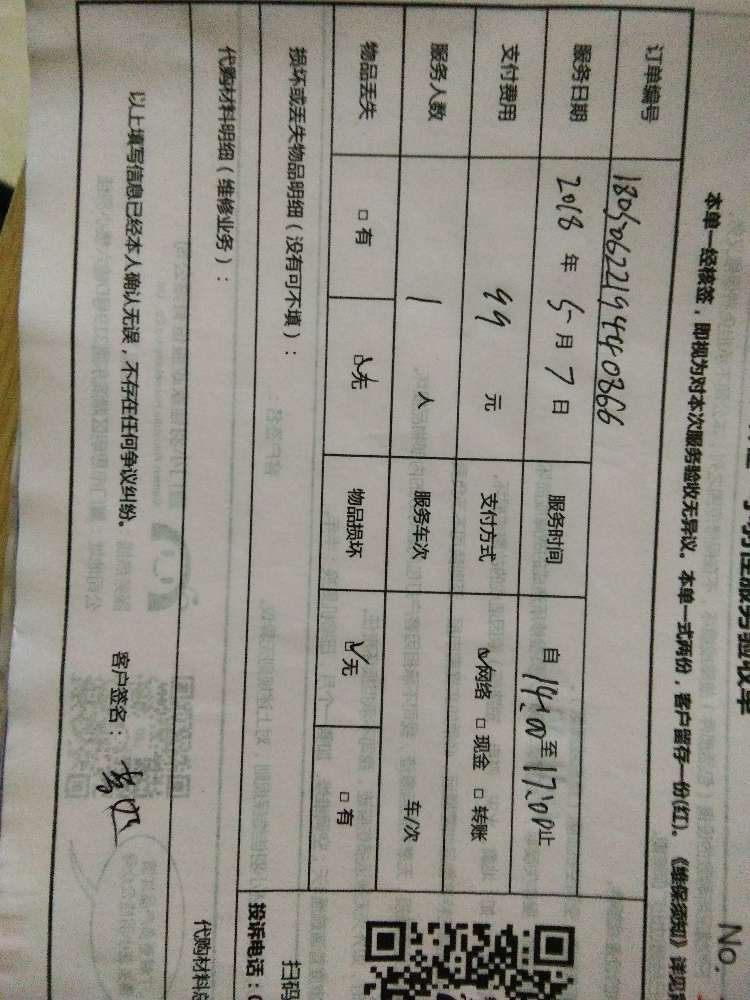 No.
本单一经核签，即视为对本次服务验收无异议。本单一式两份，客户留存一份(红)。《维保须知》详见
订单编号 18050622194440866
服务日期 2018 年 5 月 7 日 服务时间 自 14:00 至 17:00 止
支付费用 99 元 支付方式 ☑网络 □现金 □转账
服务人数 1 人 服务车次 车/次
物品丢失 □有 ☑无 物品损坏 ☑无 □有
损坏或丢失物品明细（没有可不填）：
扫码
投诉电话：
代购材料明细（维修业务）：
代购材料总
以上填写信息已经本人确认无误，不存在任何争议纠纷。 客户签名：